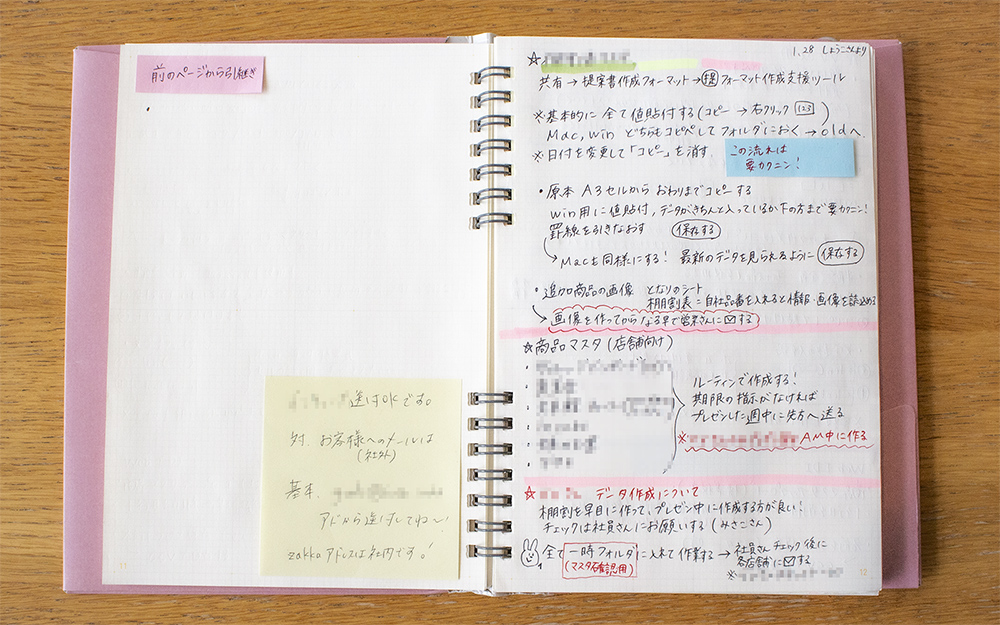 前のページから引継ぎ
送付OKです。
対. お客様へのメールは
(社外)
基本、
アドから送付してね〜!
zakkaアドレスは社内です。!
11
1、28 しょうこさんより
☆
共有→提案書作成フォーマット→提フォーマット作成支援ツール
※基本的に全て値貼付する(コピー→右クリック 123)
Mac, win どちらもコピペしてフォルダにおく→oldへ
※日付を変更して「コピー」を消す
この流れは
要カクニン!
・原本 A3セルから おわりまでコピーする
win用に値貼付、データがきちんと入っているか下の方まで要カクニン!
罫線を引きなおす 保存する
Macも同様にする! 最新のデータを見られるように 保存する
・追加商品の画像 となりのシート
棚割表=自社品番を入れると情報・画像を読込める
画像を作ってからなる早で営業さんに✉する
☆商品マスタ(店舗向け)
ルーティンで作成する!
期限の指示がなければ
プレゼンした週中に先方へ送る
※ AM中に作る
☆ データ作成について
棚割を早目に作って、プレゼン中に作成する方が良い!
チェックは社員さんにお願いする(みさこさん)
全て一時フォルダに入れて作業する→社員さんチェック後に
(マスタ確認用) 各店舗に✉する
※
12